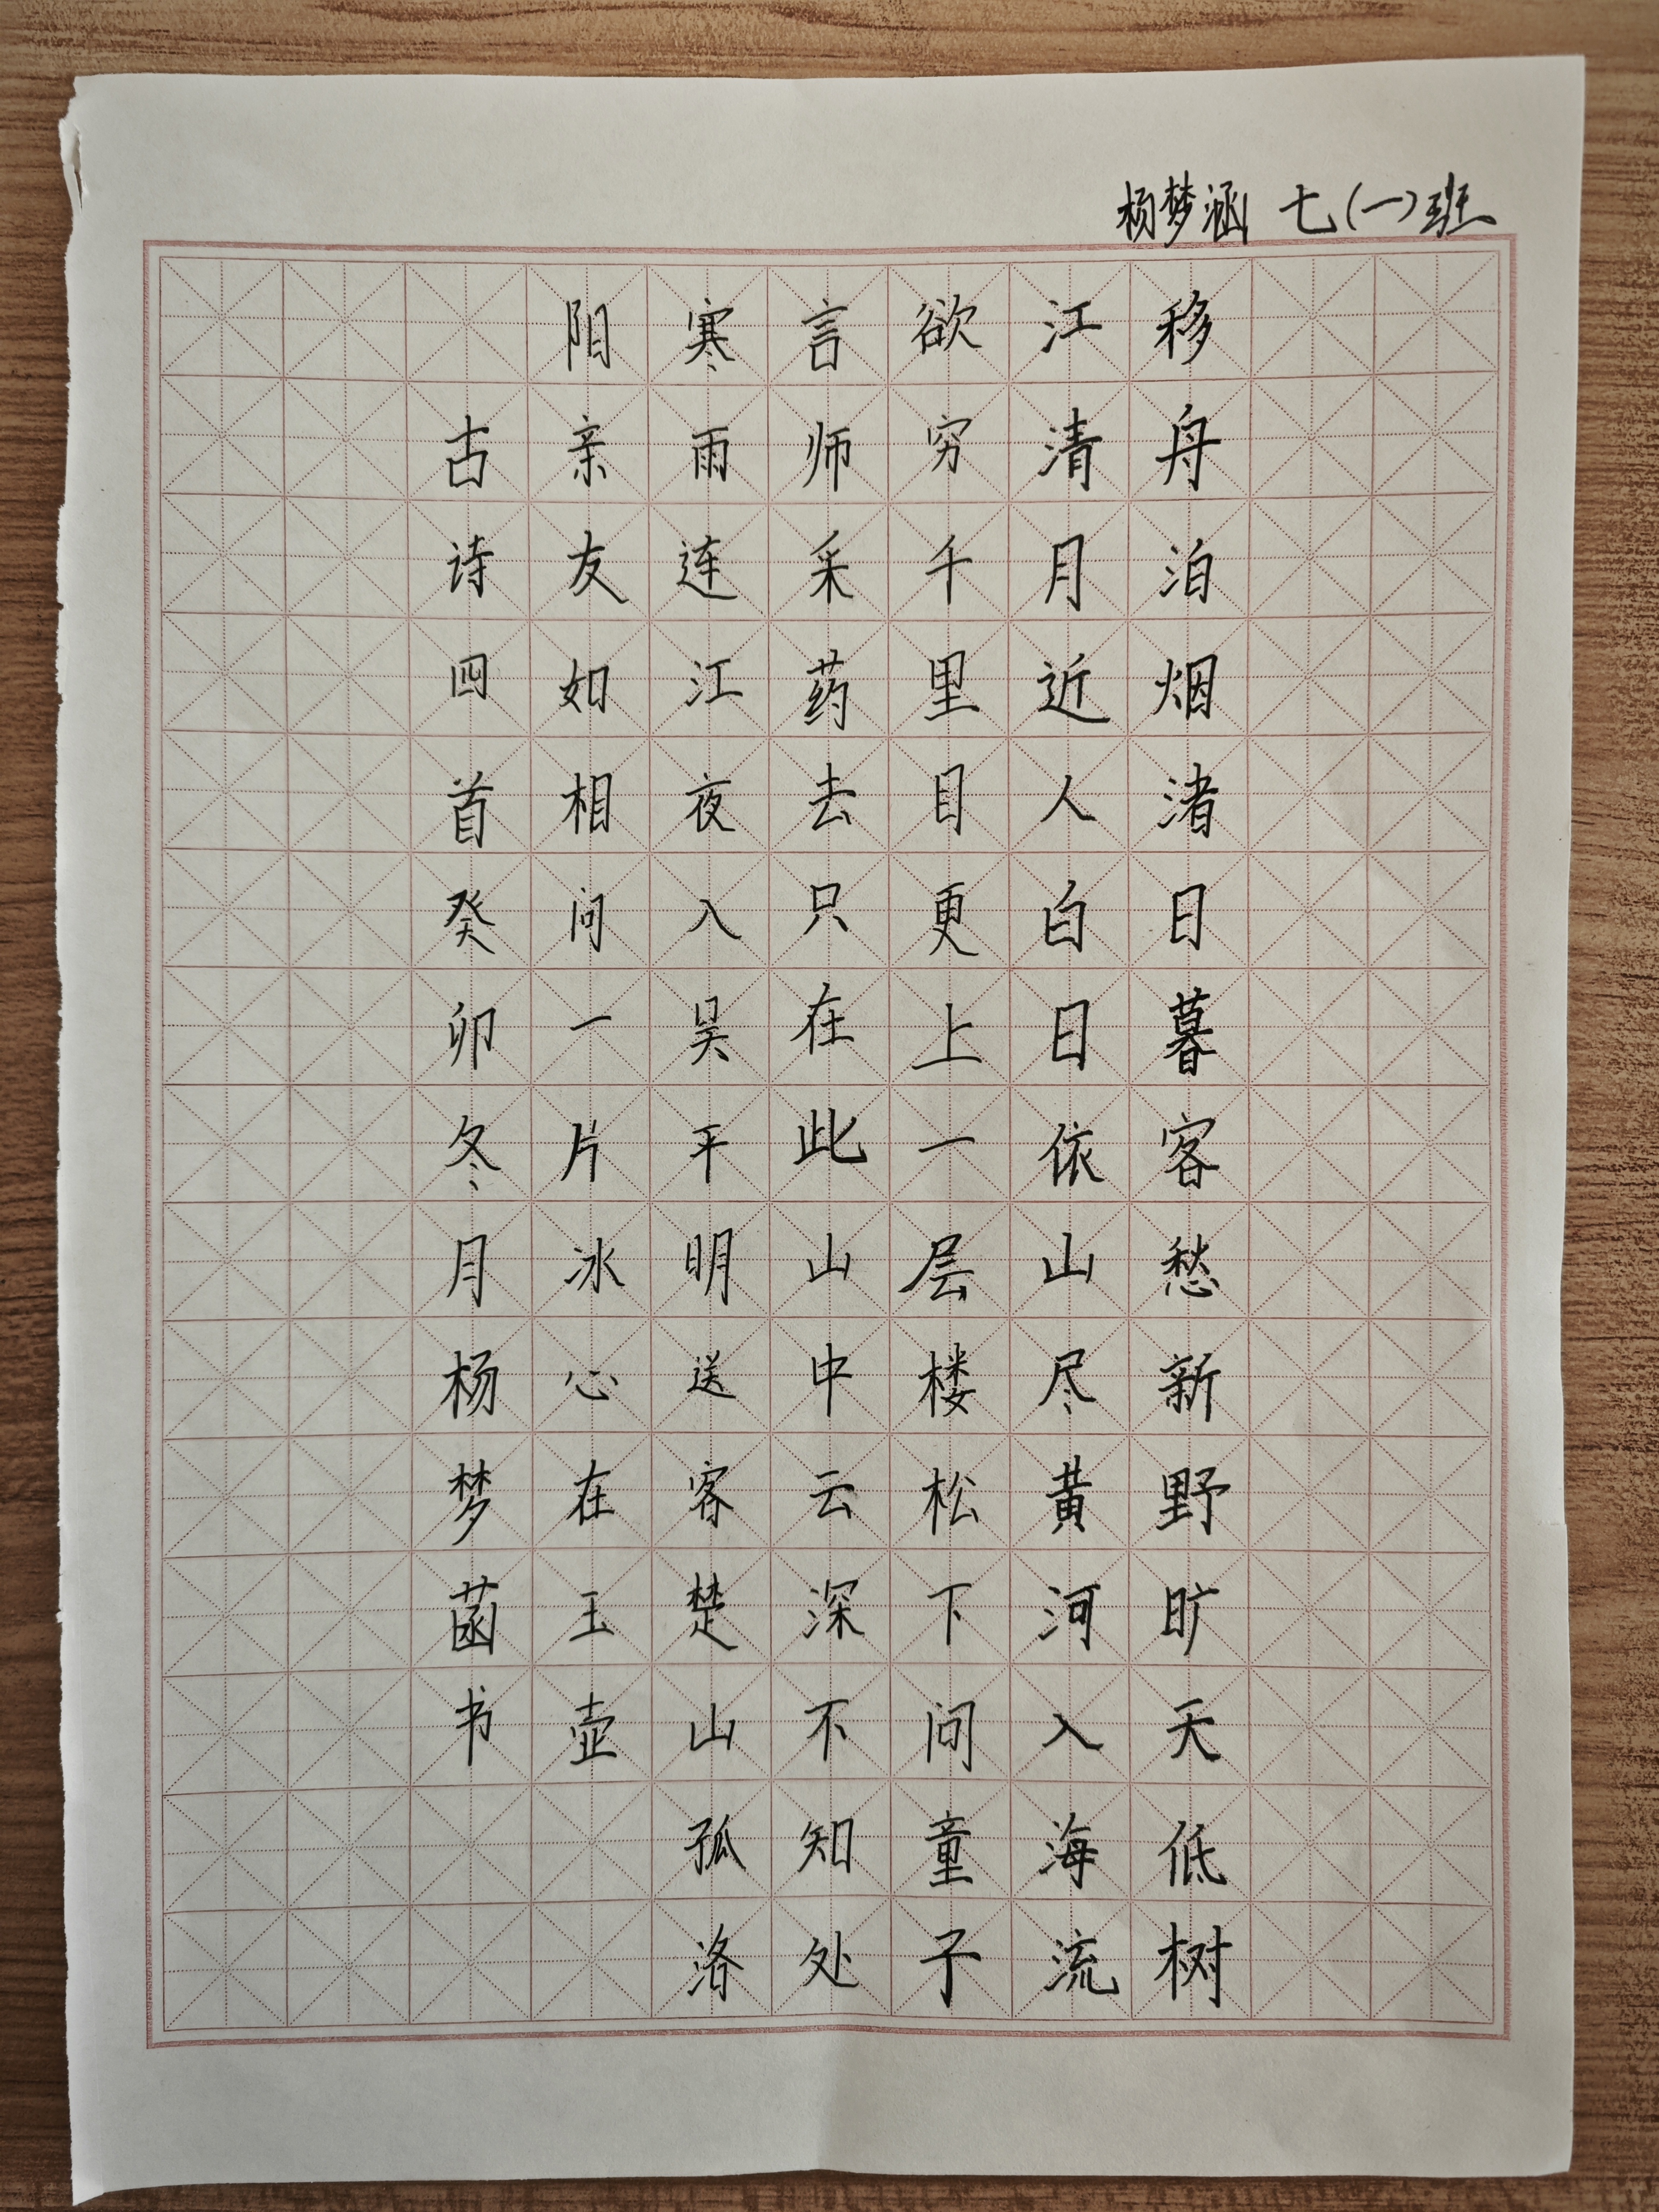 杨梦涵 七(一)班
移舟泊烟渚日暮客愁新野旷天低树
江清月近人白日依山尽黄河入海流
欲穷千里目更上一层楼松下问童子
言师采药去只在此山中云深不知处
寒雨连江夜入吴平明送客楚山孤洛
阳亲友如相问一片冰心在玉壶
古诗四首癸卯冬月杨梦菡书